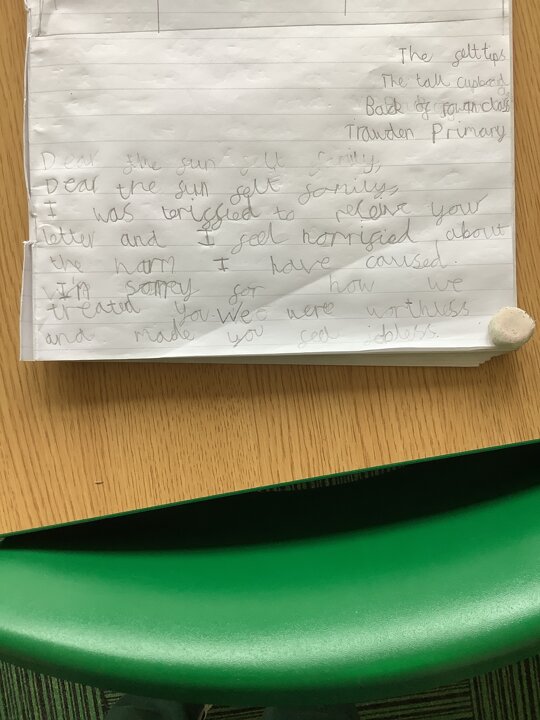 The felt tips
The tall cupboard
Back of rowan class
Trawden Primary
Dear the sun felt family,
Dear the sun felt family,
I was teriffied to recieve your
letter and I feel horrified about
the harm I have caused.
I'm sorry for how we
treated you. We were worthless
and made you feel jobless.